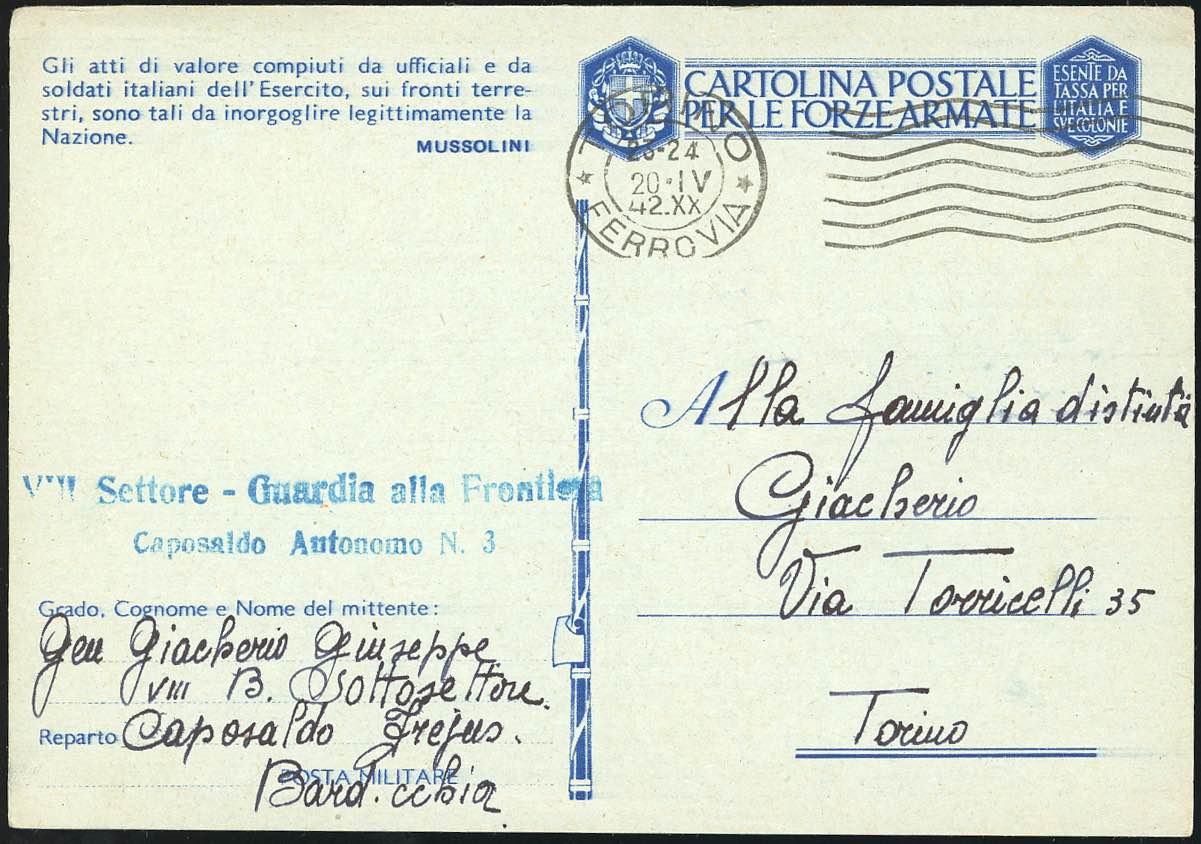 Gli atti di valore compiuti da ufficiali e da
soldati italiani dell'Esercito, sui fronti terre-
stri, sono tali da inorgoglire legittimamente la
Nazione.
MUSSOLINI
CARTOLINA POSTALE
PER LE FORZE ARMATE
ESENTE DA
TASSA PER
L'ITALIA E
SUE COLONIE
23-24
20·IV
42.XX
FERROVIA
Alla famiglia distinta
Giacherio
Via Torricelli 35
Torino
VIII Settore - Guardia alla Frontiera
Caposaldo Autonomo N. 3
Grado, Cognome e Nome del mittente:
Gen Giacherio Giuseppe
VIII B. Sottosettore.
Reparto Caposaldo Frejus.
POSTA MILITARE
Bard.cchia